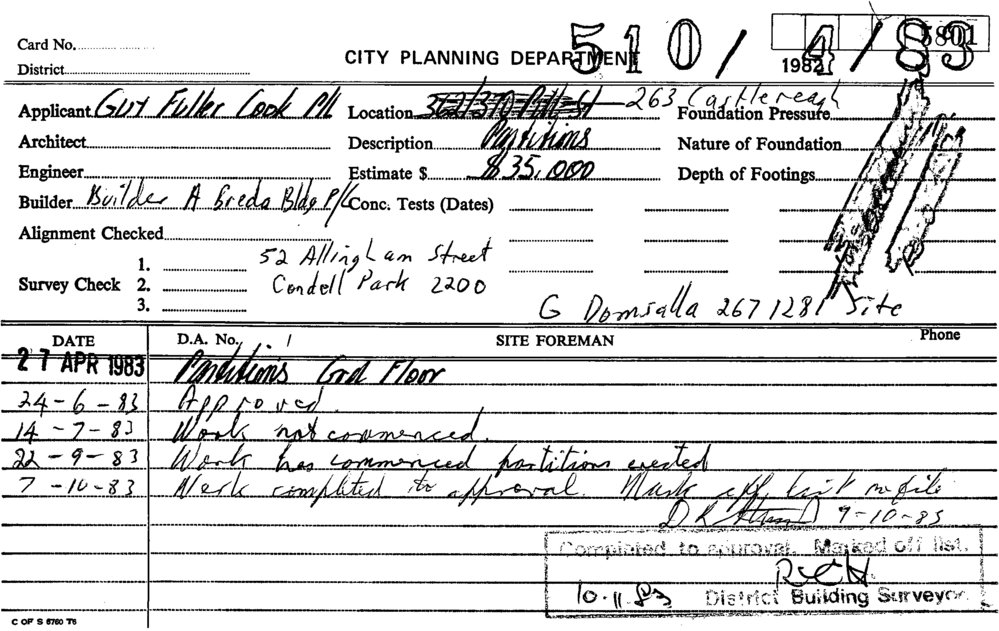 510/4/83
5801
1982
Card No.
CITY PLANNING DEPARTMENT
District
Applicant Guy Fuller Cook P/L Location 362/370 Pitt St - 263 Castlereagh Foundation Pressure
Architect Description Partitions Nature of Foundation
Engineer Estimate $ $35,000 Depth of Footings
Builder Builder A Greda Bldg P/L Conc. Tests (Dates)
Alignment Checked
52 Allingham Street
Survey Check 1. 2. 3.
Condell Park 2200
G Domsalla 267 1281 Site
DATE D.A. No. SITE FOREMAN Phone
27 APR 1983 Partitions Grd Floor
24-6-83 Approved.
14-7-83 Work not commenced.
22-9-83 Work has commenced partitions erected
7-10-83 Work completed to approval. Mark off list
D R 9-10-83
Completed to approval. Marked off list.
10.11.83 District Building Surveyor
C OF S 6760 T6